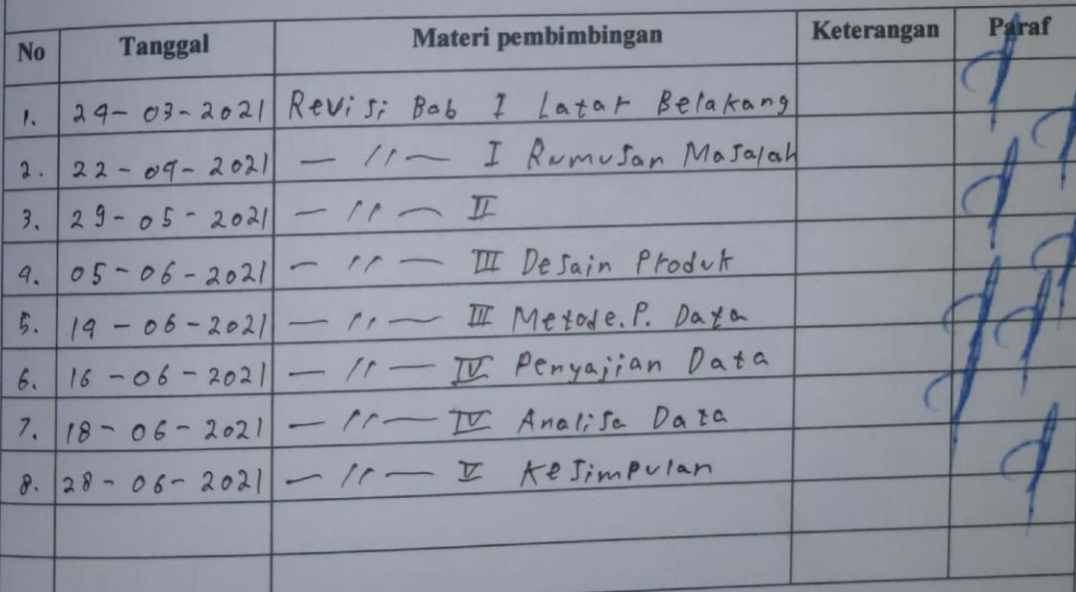 No Tanggal Materi pembimbingan Keterangan Paraf
1. 24-03-2021 Revisi Bab I Latar Belakang
2. 22-04-2021 — 11 — I Rumusan Masalah
3. 29-05-2021 — 11 — II
4. 05-06-2021 — 11 — III Desain Produk
5. 14-06-2021 — 11 — III Metode.P. Data
6. 16-06-2021 — 11 — IV Penyajian Data
7. 18-06-2021 — 11 — IV Analisa Data
8. 28-06-2021 — 11 — V Kesimpulan